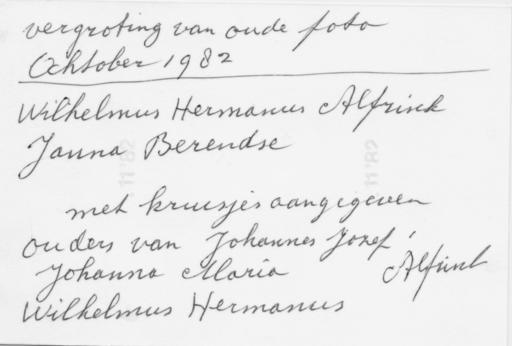 vergroting van oude foto
Ochtober 1982
Wilhelmus Hermanus Alfrink
Janna Berendse
11 '82
11 '82
met kruisjes aangegeven
ouders van Johannes Jozef,
Johanna Maria Alfrink
Wilhelmus Hermanus